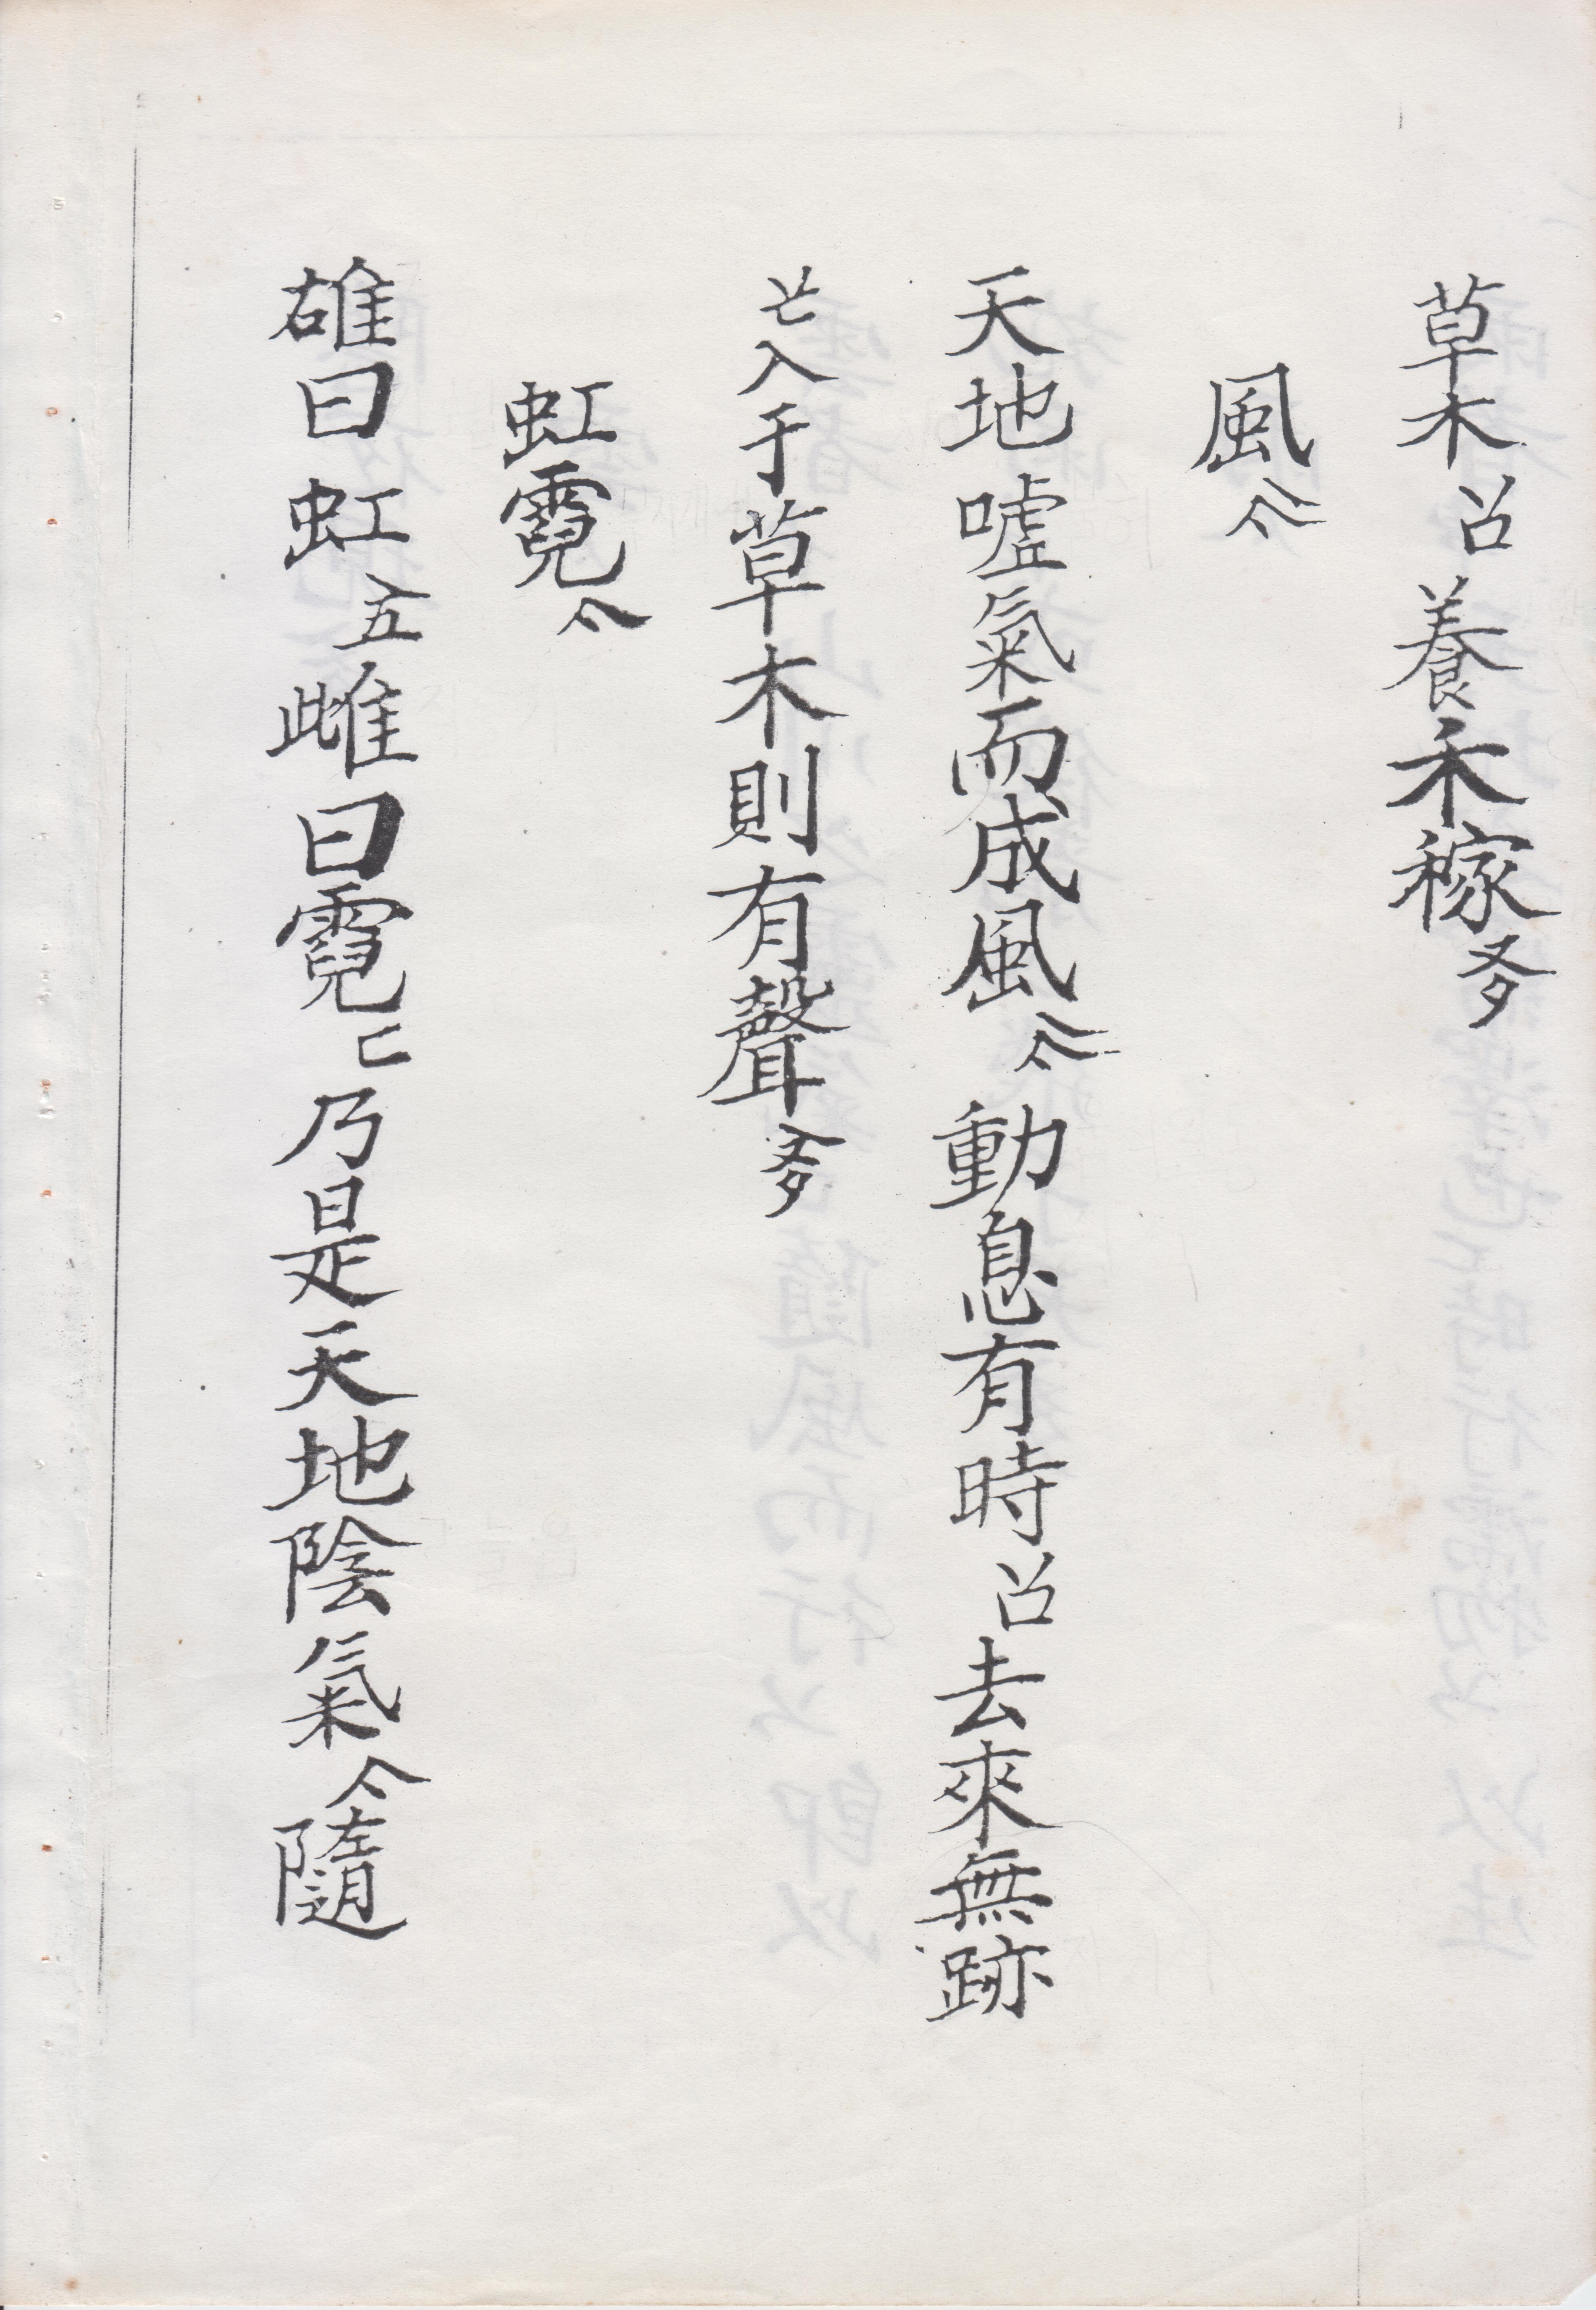 草木養禾稼
風
天地噓氣而成風動息有時去來無跡
入于草木則有聲
虹霓亽
雄曰虹五雌曰霓匸乃是天地陰氣亽隨